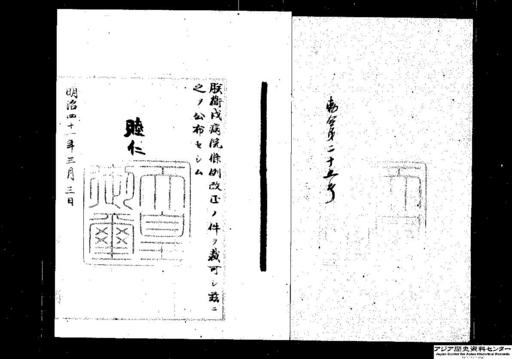 勅令第二十五号
朕衛戍病院條例改正ノ件ヲ裁可シ茲ニ
之ヲ公布セシム
睦仁
天皇御璽
明治四十一年三月三日
アジア歴史資料センター
Japan Center for Asian Historical Records